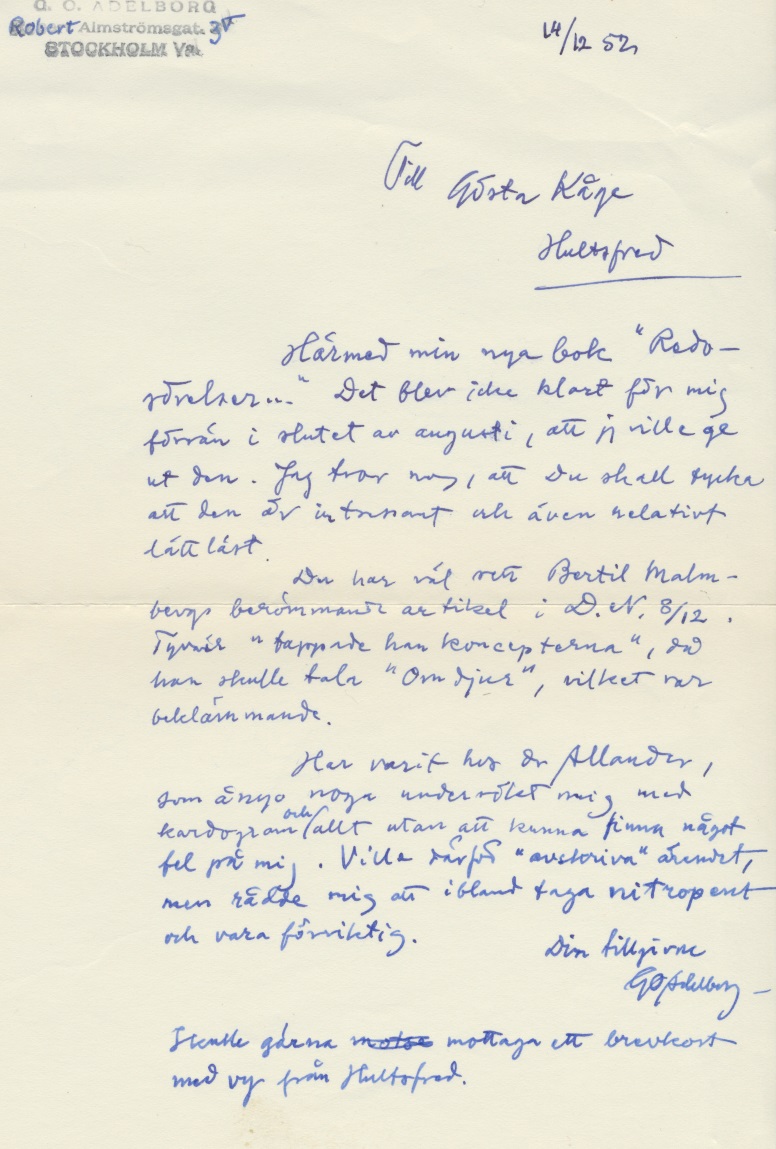 G. O. ADELBORG
Robert Almströmsgat. 3 V
STOCKHOLM Va.
14/12 52
Till Gösta Kåge
Hultsfred
Härmed min nya bok "Redo-
görelser..." Det blev icke klart för mig
förrän i slutet av augusti, att jg ville ge
ut den. Jag tror nog, att Du skall tycka
att den är intressant och även relativt
lättläst.
Du har väl sett Bertil Malm-
bergs berömmande artikel i D.N. 8/12.
Tyvärr "tappade han koncepterna", då
han skulle tala "Om djur", vilket var
beklämmande.
Har varit hos dr Allander,
som ånyo noga undersökt mig med
kardogram och allt utan att kunna finna något
fel på mig. Ville därför "avskriva" ärendet,
men rådde mig att ibland taga nitropent
och vara försiktig.
Din tillgivne
GOAdelborg
Skulle gärna mottaga ett brevkort
med vy från Hultsfred.